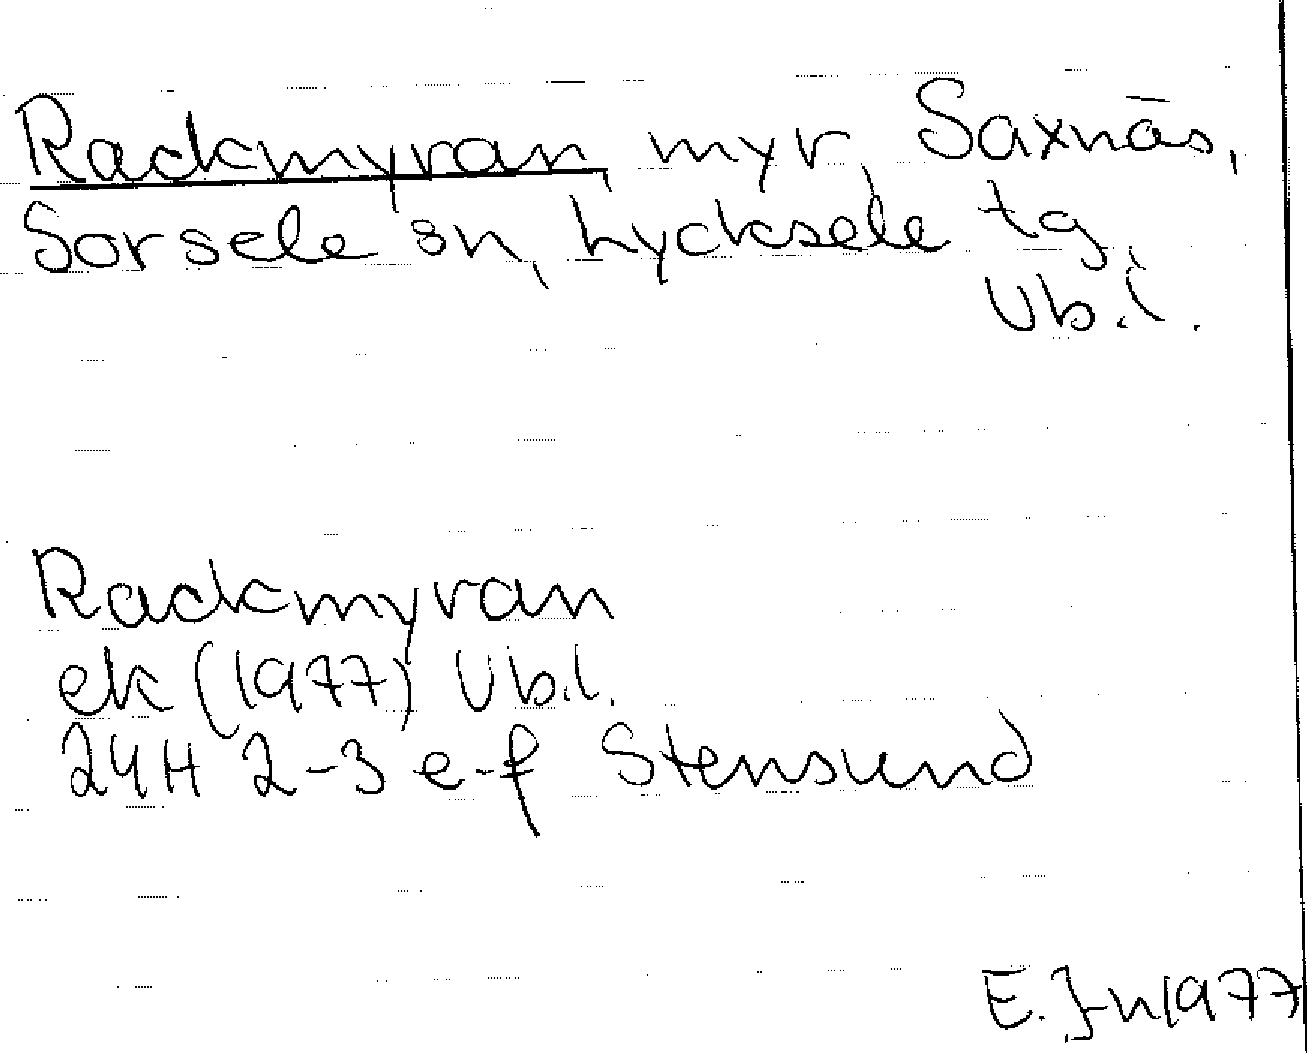 Rackmyran, myr, Saxnäs,
Sorsele sn, Lycksele tg,
Vb.l.
Rackmyran
ek (1977) Vb.l.
24H 2-3 e-f Stensund
E. J-n 1977